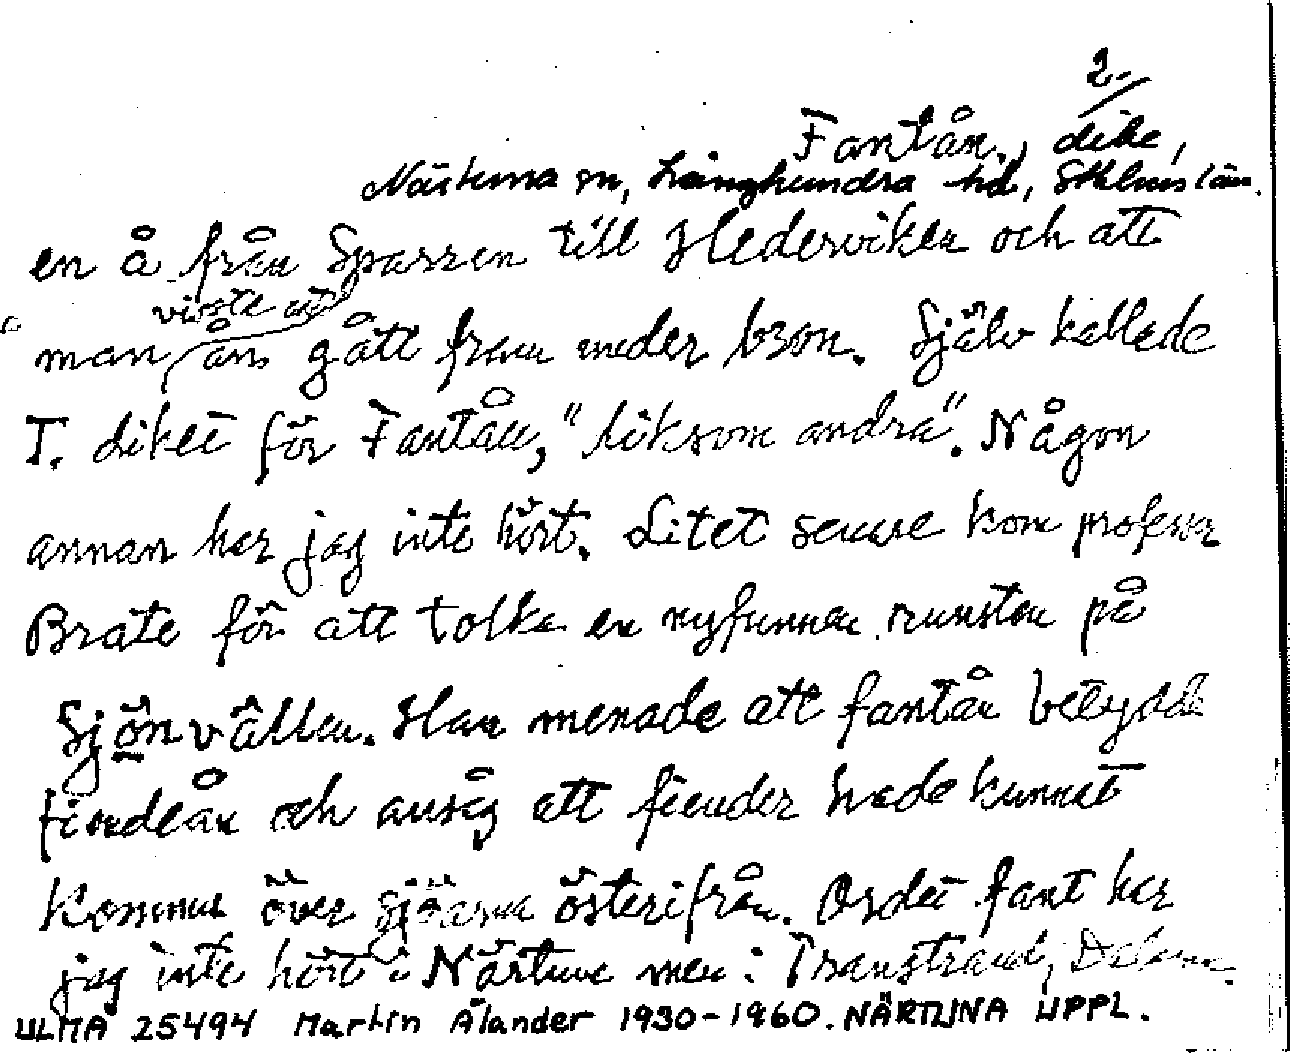 2.
Fantån., dike,
Närtuna sn, Långhundra hd, Sthlms län.
en å från Sparren till Hederviken och att
visste att
man ån gått fram under bron. Själv kallade
T. diket för Fantån, "liksom andra". Någon
annan har jag inte hört. Litet senare kom professor
Brate för att tolka en nyfunnen runsten på
Sjönvällen. Han menade att fantån betydde
fiendeån och ansåg att fiender hade kunnat
komma över sjöarna österifrån. Ordet fant har
jag inte hört i Närtuna men i Transtrand, Dalarna.
ULMA 25494 Martin Ålander 1930-1960. NÄRTUNA UPPL.